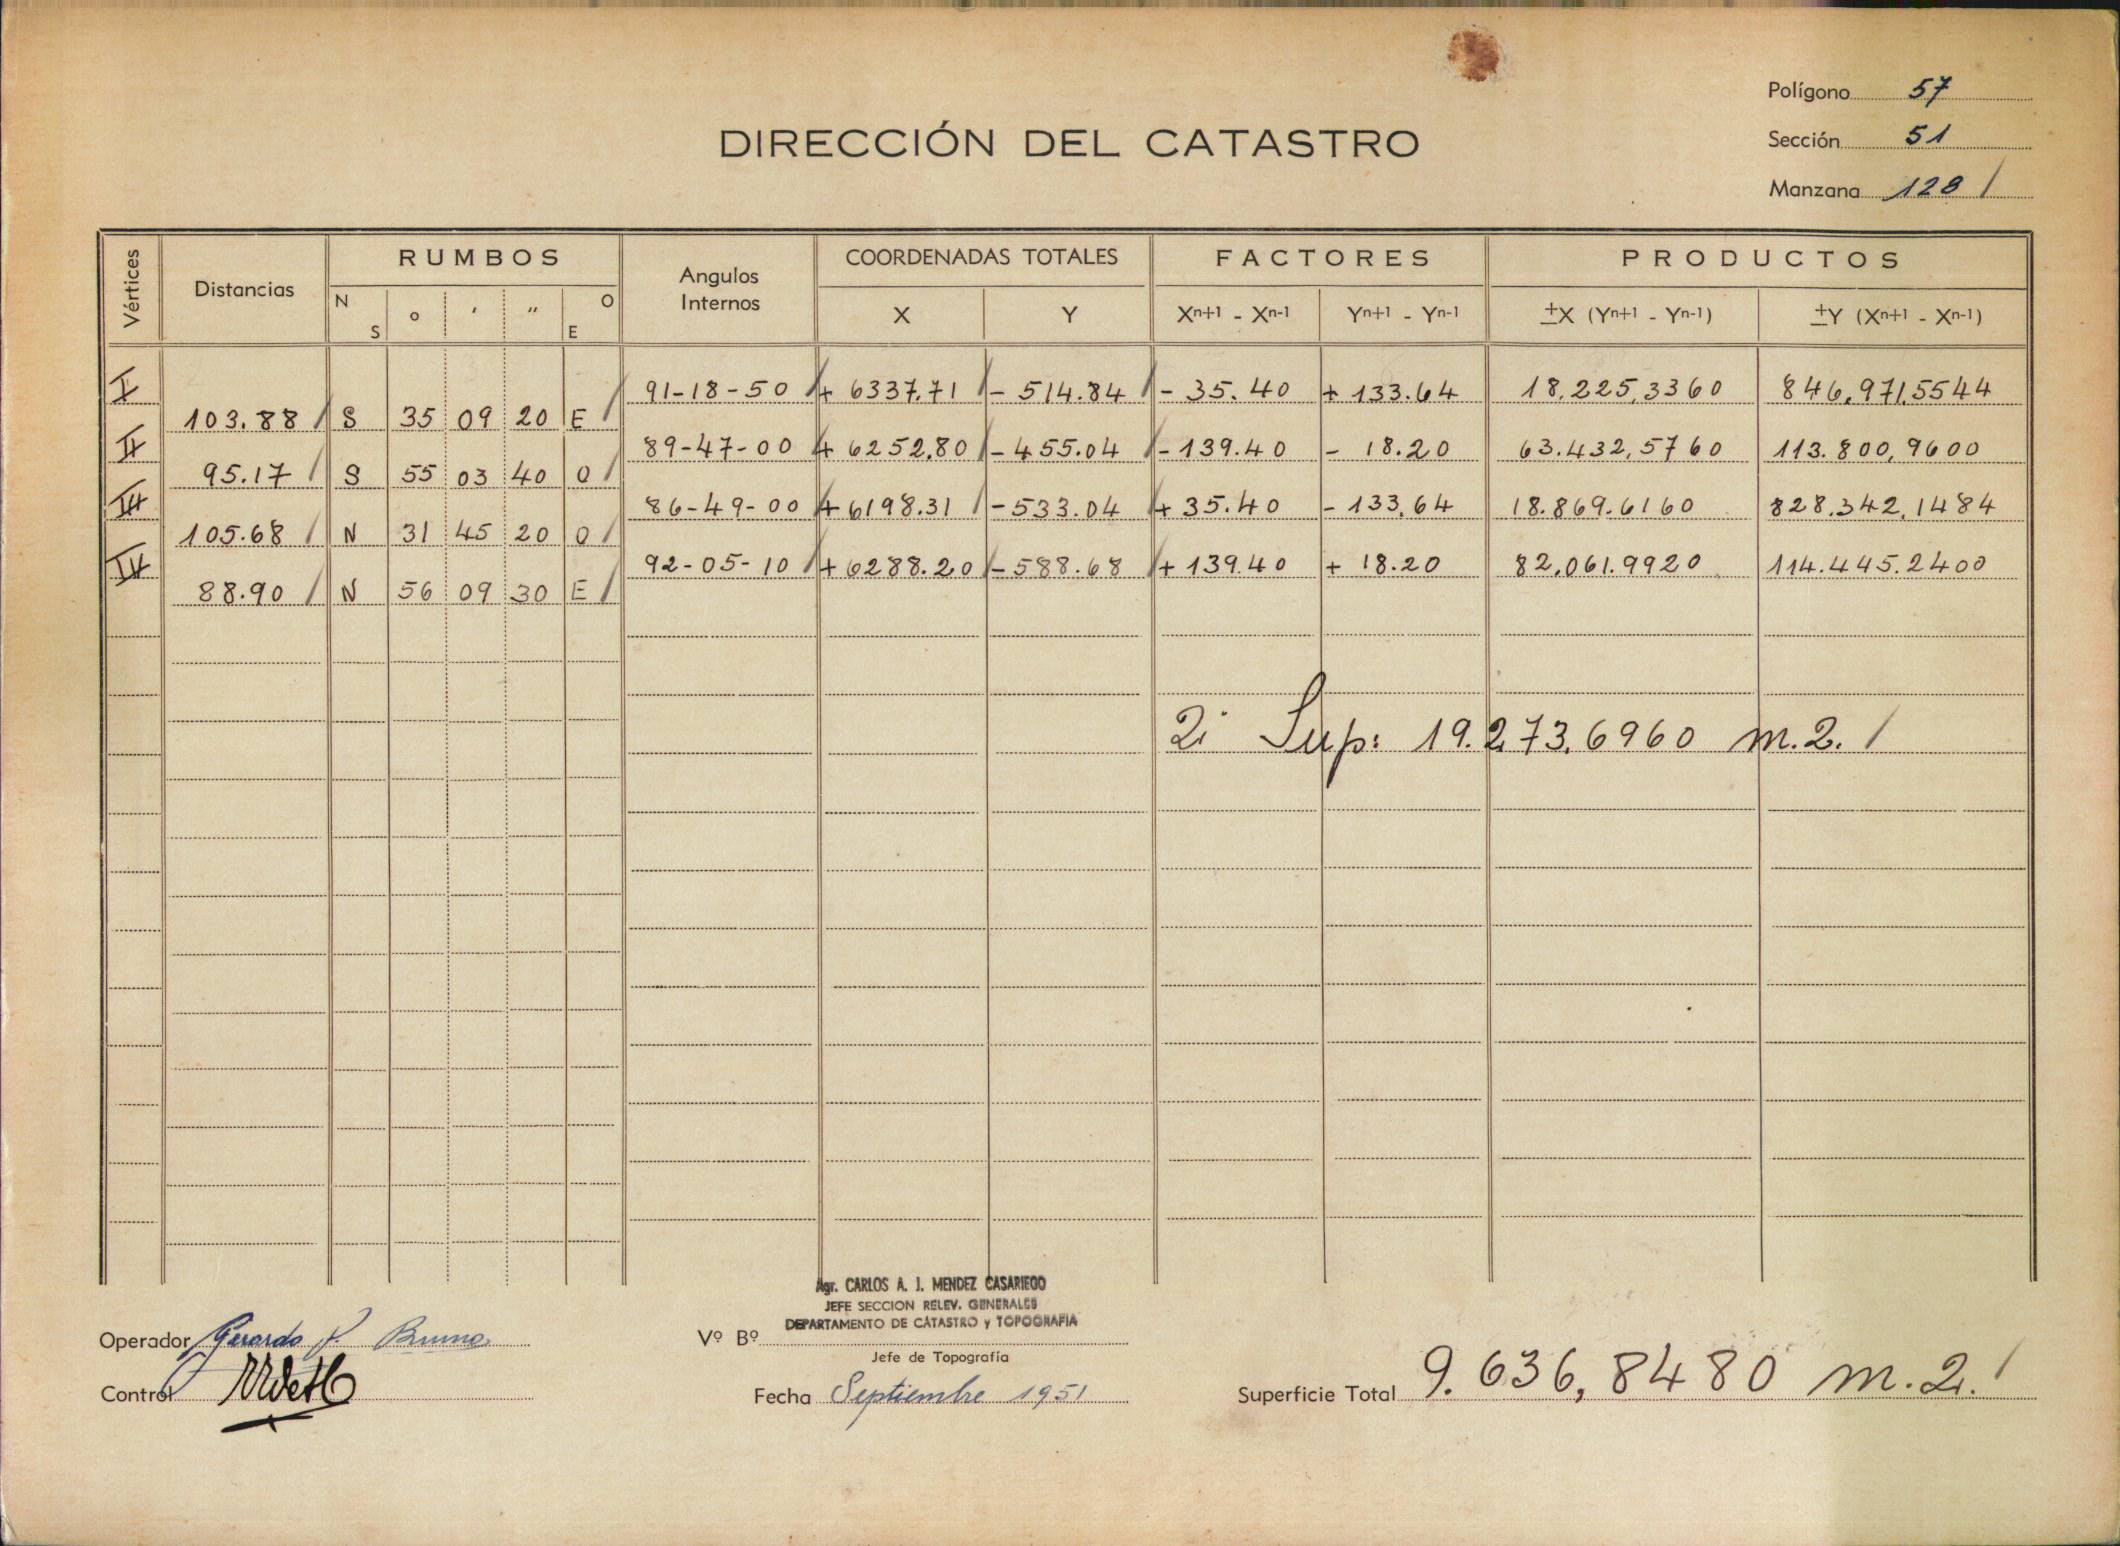 Polígono 57
DIRECCIÓN DEL CATASTRO
Sección 51
Manzana 128 /
Vértices Distancias RUMBOS Angulos Internos COORDENADAS TOTALES FACTORES PRODUCTOS
N S o ′ ″ O E X Y Xn+1 - Xn-1 Yn+1 - Yn-1 ±X (Yn+1 - Yn-1) ±Y (Xn+1 - Xn-1)
I 91-18-50 / + 6337.71 / - 514.84 / - 35.40 + 133.64 18.225,3360 846.971.5544
103.88 / S 35 09 20 E /
II 89-47-00 / + 6252.80 / - 455.04 / - 139.40 - 18.20 63.432,5760 113.800,9600
95.17 / S 55 03 40 O /
III 86-49-00 / + 6198.31 / - 533.04 / + 35.40 - 133.64 18.869.6160 828.342.1484
105.68 / N 31 45 20 O /
IV 92-05-10 / + 6288.20 / - 588.68 / + 139.40 + 18.20 82.061.9920 114.445.2400
88.90 / N 56 09 30 E /
2 Sup: 19.273,6960 m.2. /
Agr. CARLOS A. J. MENDEZ CASARIEGO
JEFE SECCION RELEV. GENERALES
DEPARTAMENTO DE CATASTRO y TOPOGRAFIA
Operador Gerardo P. Bruno
Vº Bº
Jefe de Topografía
Control
Fecha Septiembre 1951
Superficie Total 9.636,8480 m.2. /